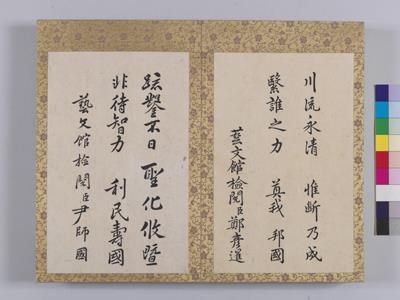 川流永清　惟斷乃成
繄誰之力　奠我　邦國
藝文館檢閱臣鄭彥暹
疏鑿不日　聖化攸曁
非待智力　利民壽國
藝文館檢閱臣尹師國